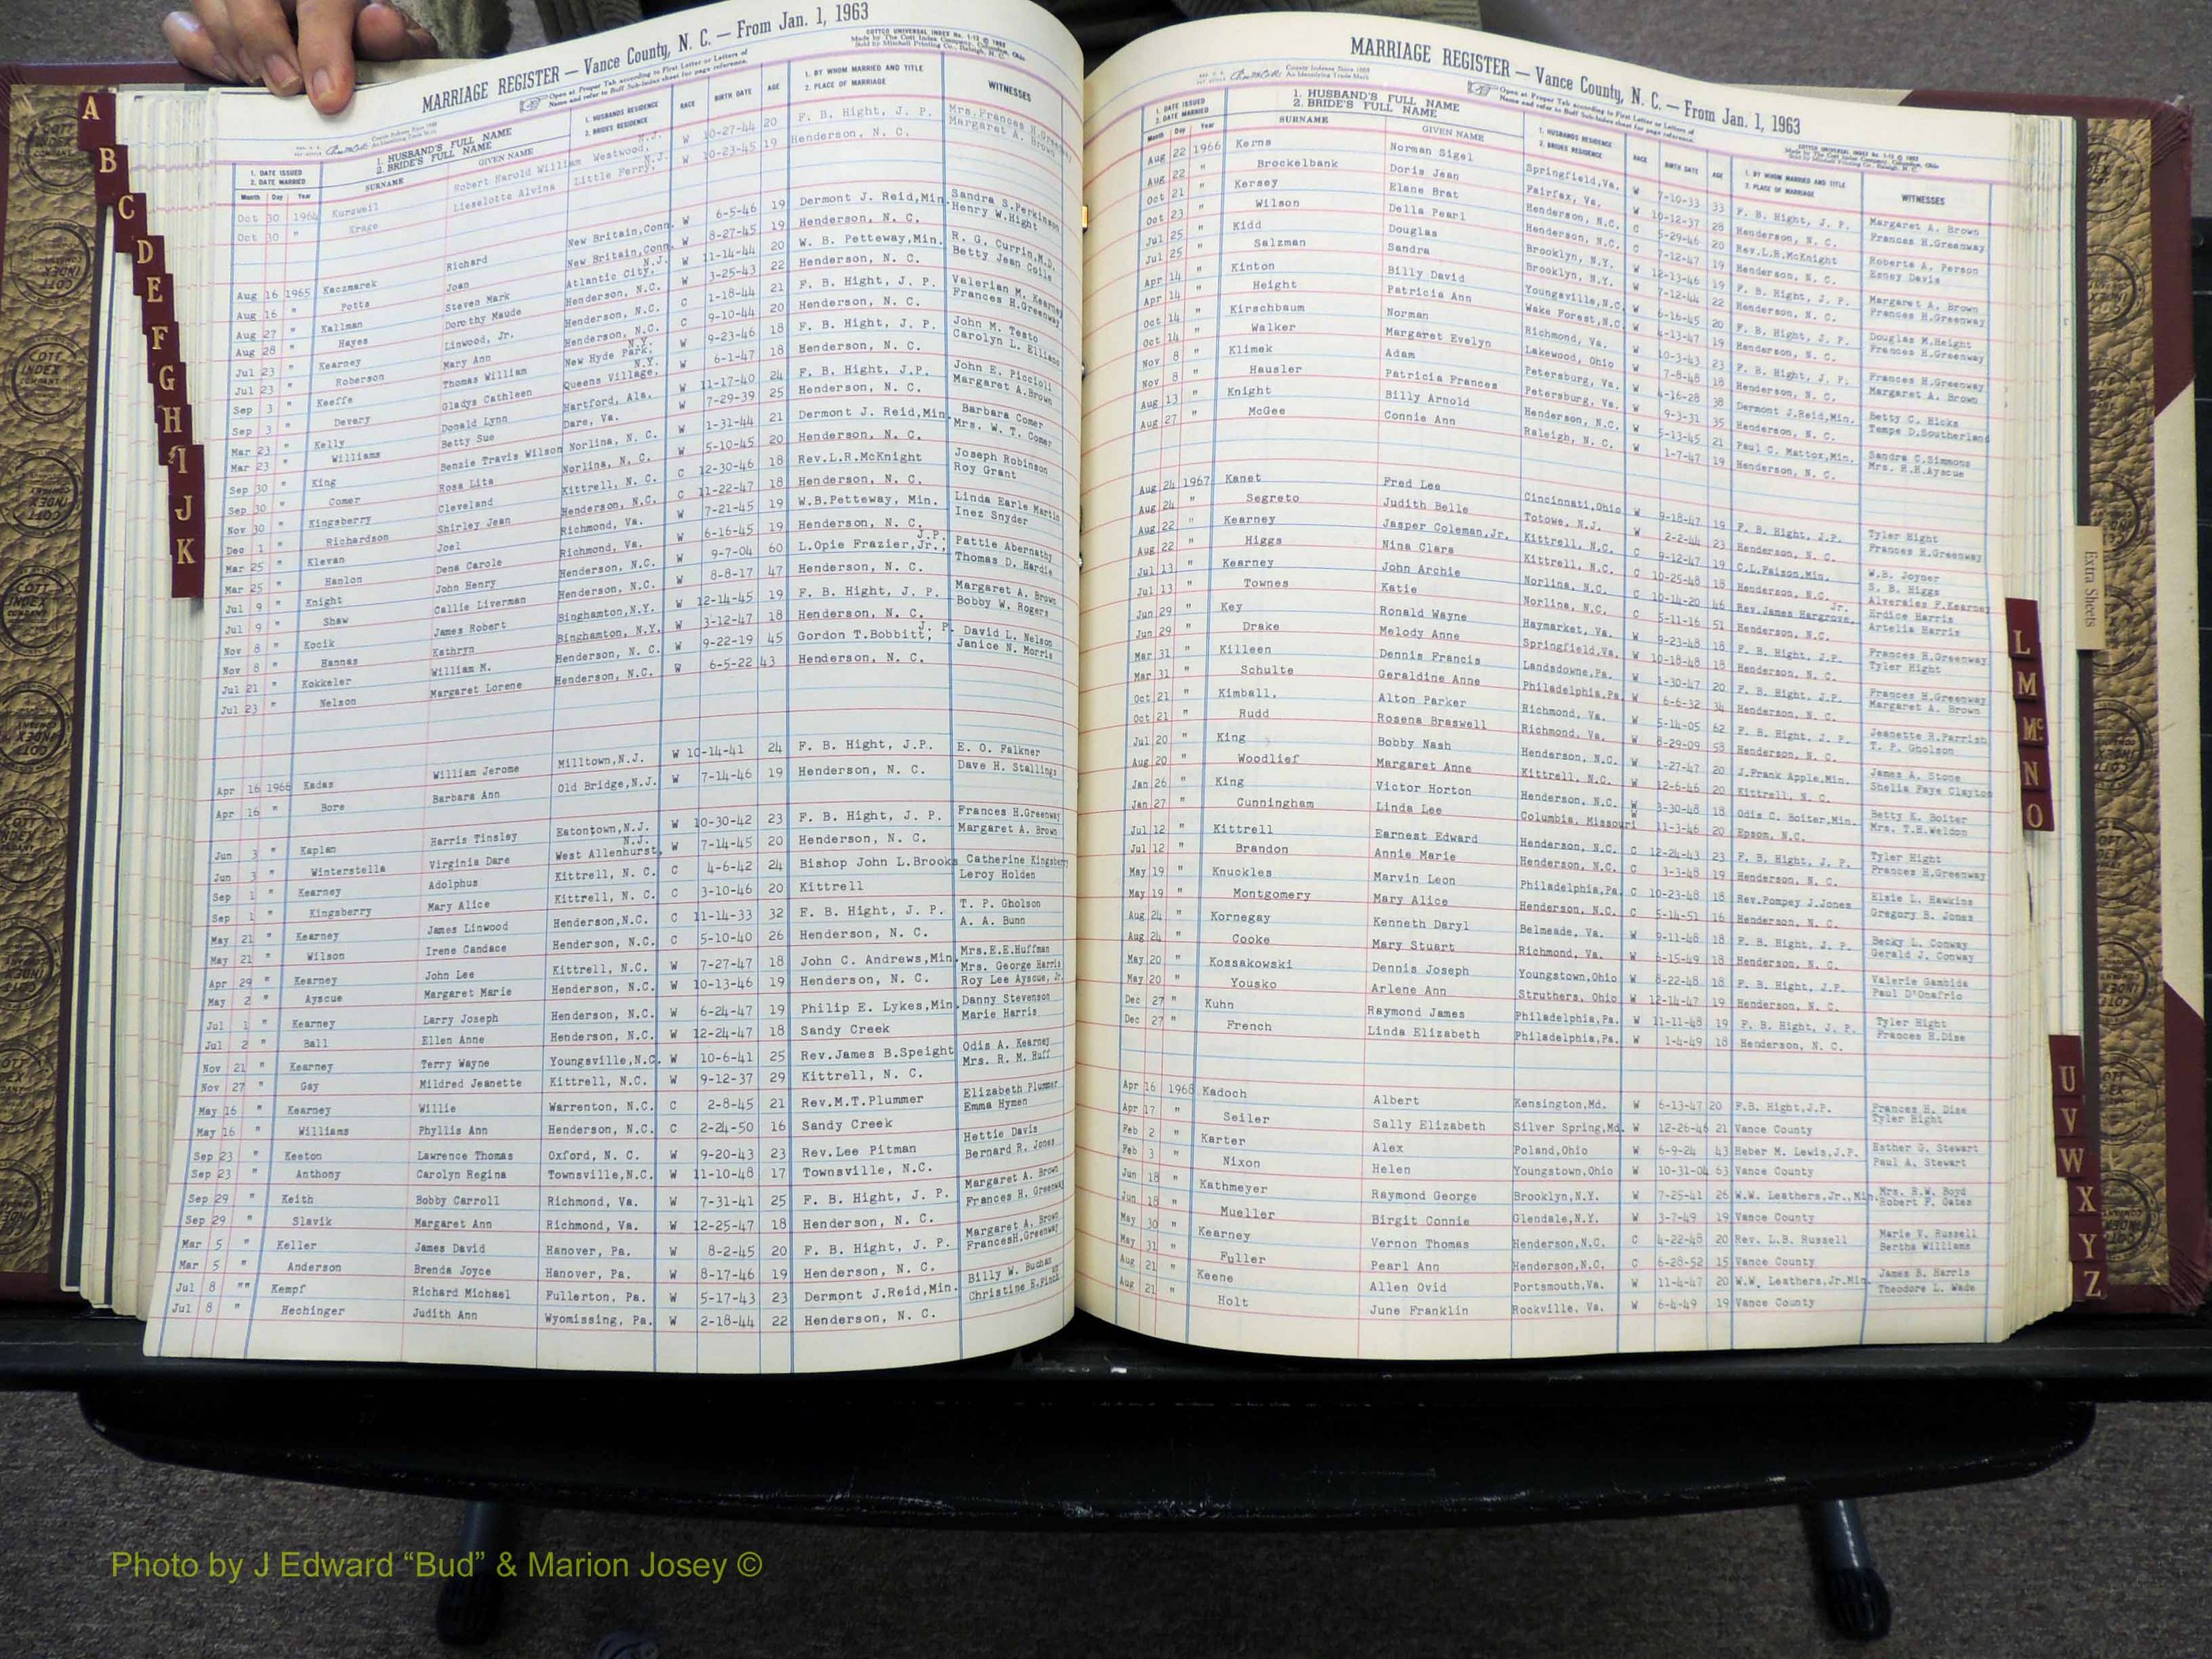 MARRIAGE REGISTER — Vance County, N. C. — From Jan. 1, 1963
Open at Proper Tab according to First Letter or Letters of
Name and refer to Buff Sub-Index sheet for page reference.
COTTCO UNIVERSAL INDEX No. 1-12 © 1952
Made by The Cott Index Company, Columbus, Ohio
Sold by Mitchell Printing Co., Raleigh, N. C.
1. DATE ISSUED 2. DATE MARRIED Month Day Year
1. HUSBAND'S FULL NAME 2. BRIDE'S FULL NAME SURNAME GIVEN NAME
1. HUSBANDS RESIDENCE 2. BRIDES RESIDENCE
RACE BIRTH DATE AGE
1. BY WHOM MARRIED AND TITLE 2. PLACE OF MARRIAGE
WITNESSES
Oct 30 1964 Kurzweil Robert Harold William Westwood, N.J. W 10-27-44 20 F. B. Hight, J. P. Mrs.Frances H.Greenway
Oct 30 " Krage Lieselotte Alvina Little Ferry, N.J. W 10-23-45 19 Henderson, N. C. Margaret A. Brown
Aug 16 1965 Kaczmarek Richard New Britain,Conn. W 6-5-46 19 Dermont J. Reid,Min. Sandra S.Perkinson
Aug 16 " Potts Joan New Britain,Conn. W 8-27-45 19 Henderson, N. C. Henry W.Hight
Aug 27 " Kallman Steven Mark Atlantic City, N.J. W 11-14-44 20 W. B. Petteway,Min. R. G. Currin,M.D.
Aug 28 " Hayes Dorothy Maude Henderson, N.C. W 3-25-43 22 Henderson, N. C. Betty Jean Coile
Jul 23 " Kearney Linwood, Jr. Henderson, N.C. C 1-18-44 21 F. B. Hight, J. P. Valerian M. Kearney
Jul 23 " Roberson Mary Ann Henderson, N.C. C 9-10-44 20 Henderson, N. C. Frances H.Greenway
Sep 3 " Keeffe Thomas William New Hyde Park, N.Y. W 9-23-46 18 F. B. Hight, J. P. John M. Testo
Sep 3 " Devery Gladys Cathleen Queens Village, N.Y. W 6-1-47 18 Henderson, N. C. Carolyn L. Elliano
Mar 23 " Kelly Donald Lynn Hartford, Ala. W 11-17-40 24 F. B. Hight, J.P. John E. Piccioli
Mar 23 " Williams Betty Sue Dare, Va. W 7-29-39 25 Henderson, N. C. Margaret A.Brown
Sep 30 " King Benzie Travis Wilson Norlina, N. C. W 1-31-44 21 Dermont J. Reid,Min. Barbara Comer
Sep 30 " Comer Rosa Lita Norlina, N. C. W 5-10-45 20 Henderson, N. C. Mrs. W. T. Comer
Nov 30 " Kingsberry Cleveland Kittrell, N. C. C 12-30-46 18 Rev.L.R.McKnight Joseph Robinson
Dec 1 " Richardson Shirley Jean Henderson, N.C. C 11-22-47 18 Henderson, N. C. Roy Grant
Mar 25 " Klevan Joel Richmond, Va. W 7-21-45 19 W.B.Petteway, Min. Linda Earle Martin
Mar 25 " Hanlon Dena Carole Richmond, Va. W 6-16-45 19 Henderson, N. C. Inez Snyder
Jul 9 " Knight John Henry Henderson, N.C. W 9-7-04 60 L.Opie Frazier,Jr., J.P. Pattie Abernathy
Jul 9 " Shaw Callie Liverman Henderson, N.C. W 8-8-17 47 Henderson, N. C. Thomas D. Hardie
Nov 8 " Kocik James Robert Binghamton,N.Y. W 12-14-45 19 F. B. Hight, J. P. Margaret A. Brown
Nov 8 " Hannas Kathryn Binghamton, N.Y. W 3-12-47 18 Henderson, N. C. Bobby W. Rogers
Jul 21 " Kokkeler William M. Henderson, N. C. W 9-22-19 45 Gordon T.Bobbitt, J. P. David L. Nelson
Jul 23 " Nelson Margaret Lorene Henderson, N.C. W 6-5-22 43 Henderson, N. C. Janice N. Morris
Apr 16 1966 Kadas William Jerome Milltown,N.J. W 10-14-41 24 F. B. Hight, J.P. E. O. Falkner
Apr 16 " Bore Barbara Ann Old Bridge,N.J. W 7-14-46 19 Henderson, N. C. Dave H. Stallings
Jun 3 " Kaplan Harris Tinsley Eatontown,N.J. W 10-30-42 23 F. B. Hight, J. P. Frances H.Greenway
Jun 3 " Winterstella Virginia Dare West Allenhurst, N.J. W 7-14-45 20 Henderson, N. C. Margaret A. Brown
Sep 1 " Kearney Adolphus Kittrell, N. C. C 4-6-42 24 Bishop John L.Brooks Catherine Kingsberry
Sep 1 " Kingsberry Mary Alice Kittrell, N. C. C 3-10-46 20 Kittrell Leroy Holden
May 21 " Kearney James Linwood Henderson,N.C. C 11-14-33 32 F. B. Hight, J. P. T. P. Gholson
May 21 " Wilson Irene Candace Henderson, N.C. C 5-10-40 26 Henderson, N. C. A. A. Bunn
Apr 29 " Kearney John Lee Kittrell, N.C. W 7-27-47 18 John C. Andrews,Min. Mrs.E.E.Huffman Mrs. George Harris
May 2 " Ayscue Margaret Marie Henderson, N.C. W 10-13-46 19 Henderson, N. C. Roy Lee Ayscue, Jr.
Jul 1 " Kearney Larry Joseph Henderson, N.C. W 6-24-47 19 Philip E. Lykes,Min. Danny Stevenson
Jul 2 " Ball Ellen Anne Henderson, N.C. W 12-24-47 18 Sandy Creek Marie Harris
Nov 21 " Kearney Terry Wayne Youngsville,N.C. W 10-6-41 25 Rev.James B.Speight Odis A. Kearney
Nov 27 " Gay Mildred Jeanette Kittrell, N.C. W 9-12-37 29 Kittrell, N. C. Mrs. R. M. Huff
May 16 " Kearney Willie Warrenton, N.C. C 2-8-45 21 Rev.M.T.Plummer Elizabeth Plummer
May 16 " Williams Phyllis Ann Henderson, N.C. C 2-24-50 16 Sandy Creek Emma Hymen
Sep 23 " Keeton Lawrence Thomas Oxford, N. C. W 9-20-43 23 Rev.Lee Pitman Hettie Davis
Sep 23 " Anthony Carolyn Regina Townsville,N.C. W 11-10-48 17 Townsville, N.C. Bernard R. Jones
Sep 29 " Keith Bobby Carroll Richmond, Va. W 7-31-41 25 F. B. Hight, J. P. Margaret A. Brown
Sep 29 " Slavik Margaret Ann Richmond, Va. W 12-25-47 18 Henderson, N. C. Frances H. Greenway
Mar 5 " Keller James David Hanover, Pa. W 8-2-45 20 F. B. Hight, J. P. Margaret A. Brown
Mar 5 " Anderson Brenda Joyce Hanover, Pa. W 8-17-46 19 Henderson, N. C. FrancesH.Greenway
Jul 8 "" Kempf Richard Michael Fullerton, Pa. W 5-17-43 23 Dermont J.Reid,Min. Billy W. Buchan
Jul 8 " Hechinger Judith Ann Wyomissing, Pa. W 2-18-44 22 Henderson, N. C. Christine E.Finch
A
B
C
D
E
F
G
H
I
J
K
MARRIAGE REGISTER — Vance County, N. C. — From Jan. 1, 1963
Open at Proper Tab according to First Letter or Letters of
Name and refer to Buff Sub-Index sheet for page reference.
COTTCO UNIVERSAL INDEX No. 1-12 © 1952
Made by The Cott Index Company, Columbus, Ohio
Sold by Mitchell Printing Co., Raleigh, N. C.
1. DATE ISSUED 2. DATE MARRIED Month Day Year
1. HUSBAND'S FULL NAME 2. BRIDE'S FULL NAME SURNAME GIVEN NAME
1. HUSBANDS RESIDENCE 2. BRIDES RESIDENCE
RACE BIRTH DATE AGE
1. BY WHOM MARRIED AND TITLE 2. PLACE OF MARRIAGE
WITNESSES
Aug 22 1966 Kerns Norman Sigel Springfield,Va. W 7-10-33 33 F. B. Hight, J. P. Margaret A. Brown
Aug 22 " Brockelbank Doris Jean Fairfax, Va. W 10-12-37 28 Henderson, N. C. Frances H.Greenway
Oct 21 " Kersey Elane Brat Henderson, N.C. C 5-29-46 20 Rev.L.R.McKnight Roberta A. Person
Oct 23 " Wilson Della Pearl Henderson, N.C. C 7-12-47 19 Henderson, N. C. Esney Davis
Jul 25 " Kidd Douglas Brooklyn, N.Y. W 12-13-46 19 F. B. Hight, J. P. Margaret A. Brown
Jul 25 " Salzman Sandra Brooklyn, N.Y. W 7-12-44 22 Henderson, N. C. Frances H.Greenway
Apr 14 " Kinton Billy David Youngsville,N.C. W 6-16-45 20 F. B. Hight, J. P. Douglas M.Height
Apr 14 " Height Patricia Ann Wake Forest,N.C. W 4-13-47 19 Henderson, N. C. Frances H.Greenway
Oct 14 " Kirschbaum Norman Richmond, Va. W 10-3-43 23 F. B. Hight, J. P. Frances H.Greenway
Oct 14 " Walker Margaret Evelyn Lakewood, Ohio W 7-8-48 18 Henderson, N. C. Margaret A. Brown
Nov 8 " Klimek Adam Petersburg, Va. W 4-16-28 38 Dermont J.Reid,Min. Betty C. Hicks
Nov 8 " Hausler Patricia Frances Petersburg, Va. W 9-3-31 35 Henderson, N. C. Tempe D.Southerland
Aug 13 " Knight Billy Arnold Henderson, N.C. W 5-13-45 21 Paul C. Mattox,Min. Sandra C.Simmons
Aug 27 " McGee Connie Ann Raleigh, N. C. W 1-7-47 19 Henderson, N. C. Mrs. R.H.Ayscue
Aug 24 1967 Kanet Fred Lee Cincinnati,Ohio W 9-18-47 19 F. B. Hight, J.P. Tyler Hight
Aug 24 " Segreto Judith Belle Totowe, N.J. W 2-2-44 23 Henderson, N. C. Frances H.Greenway
Aug 22 " Kearney Jasper Coleman,Jr. Kittrell, N.C. C 9-12-47 19 C.L.Faison,Min. W.B. Joyner
Aug 22 " Higgs Nina Clara Kittrell, N.C. C 10-25-48 18 Henderson, N.C. S. B. Higgs
Jul 13 " Kearney John Archie Norlina, N.C. C 10-14-20 46 Rev.James Hargrove, Jr. Alveraies F.Kearney Erdice Harris
Jul 13 " Townes Katie Norlina, N.C. C 5-11-16 51 Henderson, N.C. Artelia Harris
Jun 29 " Key Ronald Wayne Haymarket, Va. W 9-23-48 18 F. B. Hight, J.P. Frances H.Greenway
Jun 29 " Drake Melody Anne Springfield,Va. W 10-18-48 18 Henderson, N. C. Tyler Hight
Mar 31 " Killeen Dennis Francis Landsdowne,Pa. W 1-30-47 20 F. B. Hight, J.P. Frances H.Greenway
Mar 31 " Schulte Geraldine Anne Philadelphia,Pa. W 6-6-32 34 Henderson, N. C. Margaret A. Brown
Oct 21 " Kimball, Alton Parker Richmond, Va. W 5-14-05 62 F. B. Hight, J. P. Jeanette R.Parrish
Oct 21 " Rudd Rosena Braswell Richmond, Va. W 8-29-09 58 Henderson, N. C. T. P. Gholson
Jul 20 " King Bobby Nash Henderson, N.C. W 1-27-47 20 J.Frank Apple,Min. James A. Stone
Aug 20 " Woodlief Margaret Anne Kittrell, N.C. W 12-6-46 20 Kittrell, N. C. Shelia Faye Clayton
Jan 26 " King Victor Horton Henderson, N.C. W 3-30-48 18 Odis C. Boiter,Min. Betty K. Boiter
Jan 27 " Cunningham Linda Lee Columbia, Missouri W 11-3-46 20 Epsom, N.C. Mrs. T.H.Weldon
Jul 12 " Kittrell Earnest Edward Henderson, N.C. C 12-24-43 23 F. B. Hight, J. P. Tyler Hight
Jul 12 " Brandon Annie Marie Henderson, N.C. C 3-3-48 19 Henderson, N. C. Frances H.Greenway
May 19 " Knuckles Marvin Leon Philadelphia,Pa. C 10-23-48 18 Rev.Pompey J.Jones Elsie L. Hawkins
May 19 " Montgomery Mary Alice Henderson, N.C. C 5-14-51 16 Henderson, N. C. Gregory B. Jones
Aug 24 " Kornegay Kenneth Daryl Belmeade, Va. W 9-11-48 18 F. B. Hight, J. P. Becky L. Conway
Aug 24 " Cooke Mary Stuart Richmond, Va. W 6-15-49 18 Henderson, N. C. Gerald J. Conway
May 20 " Kossakowski Dennis Joseph Youngstown,Ohio W 8-22-48 18 F. B. Hight, J.P. Valerie Gambida
May 20 " Yousko Arlene Ann Struthers, Ohio W 12-14-47 19 Henderson, N. C. Paul D'Onofrio
Dec 27 " Kuhn Raymond James Philadelphia,Pa. W 11-11-48 19 F. B. Hight, J. P. Tyler Hight
Dec 27 " French Linda Elizabeth Philadelphia,Pa. W 1-4-49 18 Henderson, N. C. Frances H.Dise
Apr 16 1968 Kadoch Albert Kensington,Md. W 6-13-47 20 F.B. Hight,J.P. Frances H. Dise
Apr 17 " Seiler Sally Elizabeth Silver Spring,Md. W 12-26-46 21 Vance County Tyler Hight
Feb 2 " Karter Alex Poland,Ohio W 6-9-24 43 Heber M. Lewis,J.P. Esther G. Stewart
Feb 3 " Nixon Helen Youngstown,Ohio W 10-31-04 63 Vance County Paul A. Stewart
Jun 18 " Kathmeyer Raymond George Brooklyn,N.Y. W 7-25-41 26 W.W. Leathers,Jr.,Min. Mrs. R.W. Boyd
Jun 18 " Mueller Birgit Connie Glendale,N.Y. W 3-7-49 19 Vance County Robert F. Oates
May 30 " Kearney Vernon Thomas Henderson,N.C. C 4-22-48 20 Rev. L.B. Russell Marie V. Russell
May 31 " Fuller Pearl Ann Henderson,N.C. C 6-28-52 15 Vance County Bertha Williams
Aug 21 " Keene Allen Ovid Portsmouth,Va. W 11-4-47 20 W.W. Leathers,Jr.Min. James B. Harris
Aug 21 " Holt June Franklin Rockville, Va. W 6-4-49 19 Vance County Theodore L. Wade
Extra Sheets
L
M
Mc
N
O
U
V
W
X
Y
Z
COTT INDEX COMPANY
Photo by J Edward “Bud” & Marion Josey ©